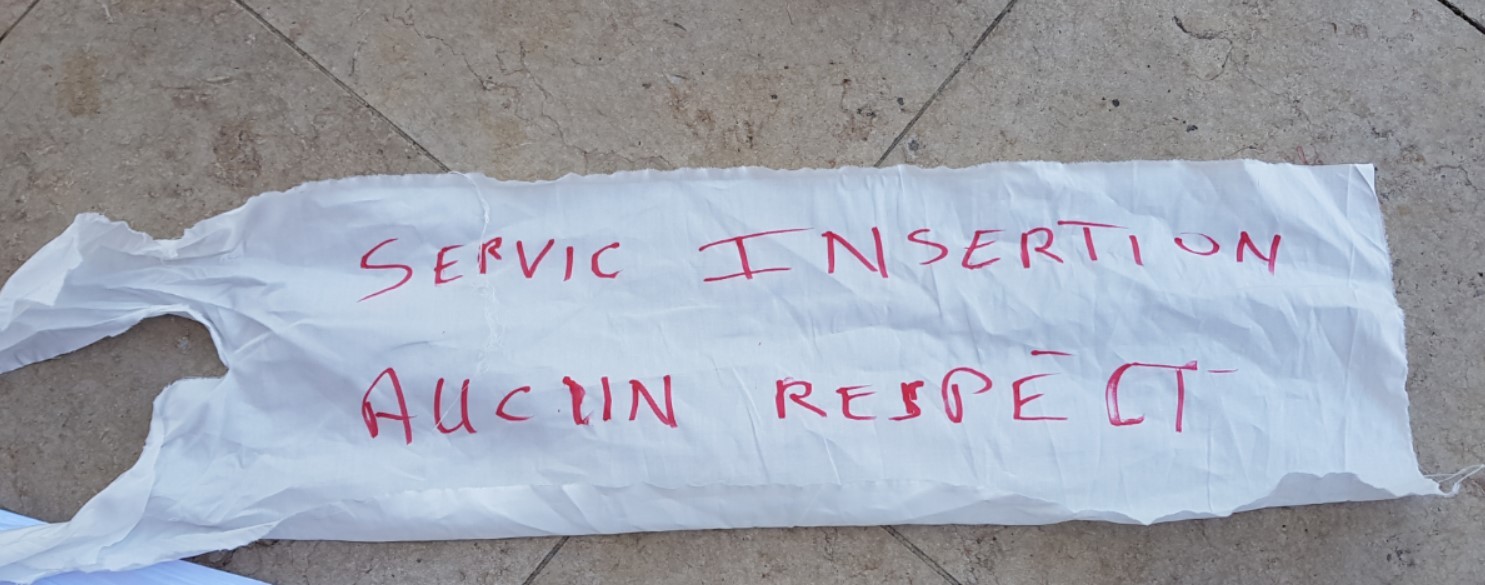 SERVIC INSERTION
AUCUN RESPECT